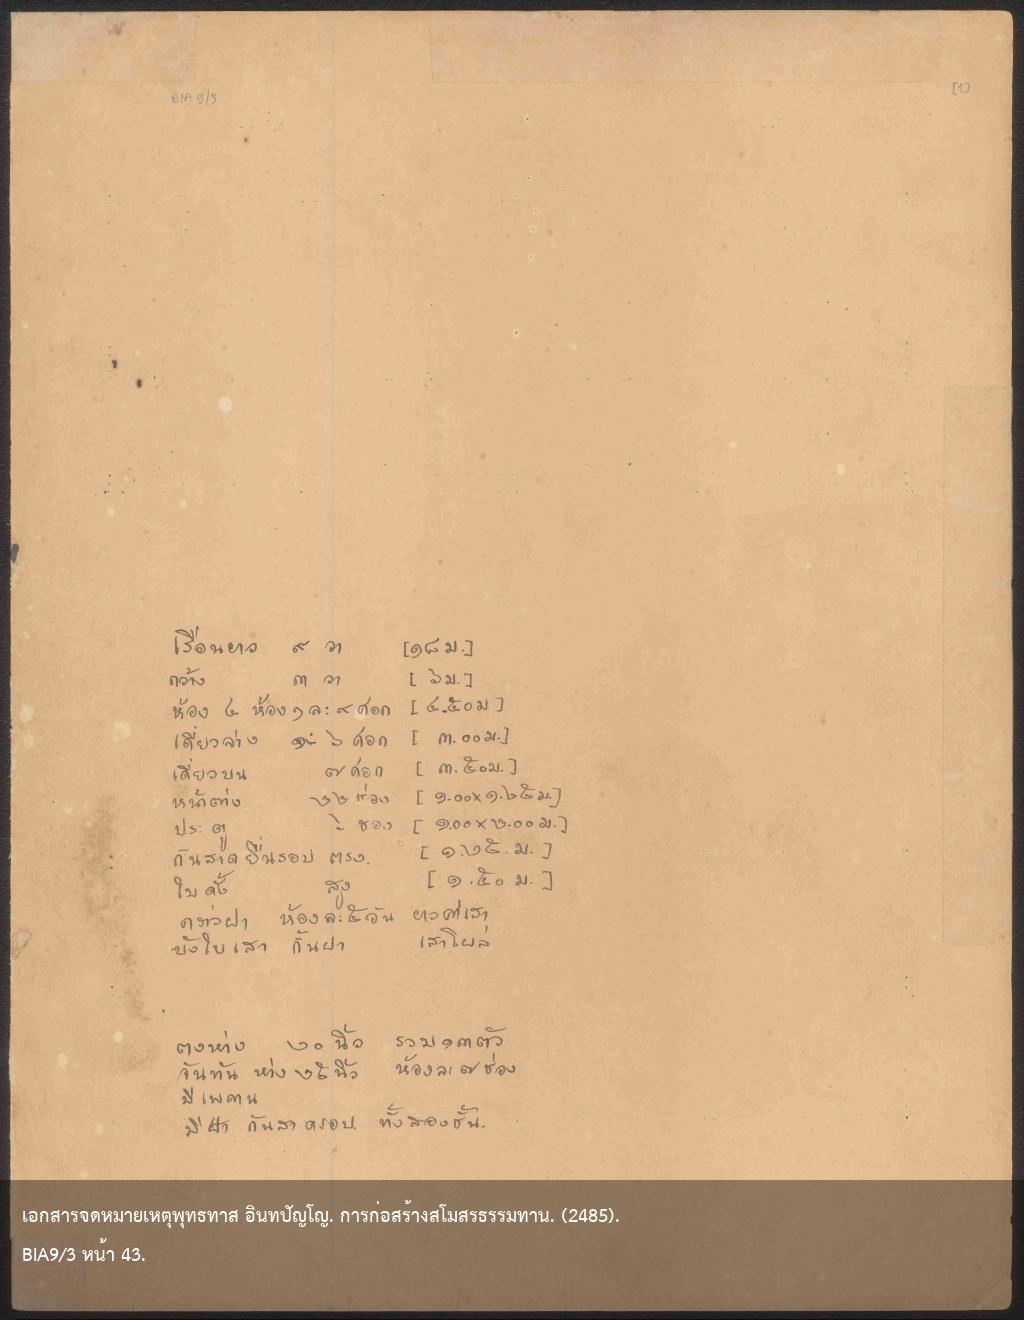 BIA 9/3
[1]
เรือนยาว ๙ วา [๑๘ ม.]
กว้าง ๓ วา [ ๖ม.]
ห้อง ๔ ห้องๆละ ๙ ศอก [ ๔.๕๐ม ]
เดี่ยวล่าง ๖ ศอก [ ๓.๐๐ม.]
เดี่ยวบน ๗ ศอก [ ๓.๕๐ม.]
หน้าต่าง ๒๒ ช่อง [ ๑.๐๐x๑.๒๕ม.]
ประตู ช่อง [ ๑.๐๐x๒.๐๐ม.]
กันสาดยื่นรอบ ตรง. [ ๑.๒๕ ม. ]
ใบดั้ง สูง [ ๑.๕๐ ม. ]
คร่าวฝา ห้องละ ๕ อัน ยาว เสา
บังใบเสา กั้นฝา เสาโผล่
ตงห่าง ๒๐ นิ้ว รวม ๑๓ ตัว
จันทัน ห่าง ๒๕ นิ้ว ห้องละ ๗ ช่อง
มีเพดาน
มีฝ้า กันสาดรอบ ทั้งสองชั้น.
เอกสารจดหมายเหตุพุทธทาส อินทปัญโญ. การก่อสร้างสโมสรธรรมทาน. (2485).
BIA9/3 หน้า 43.